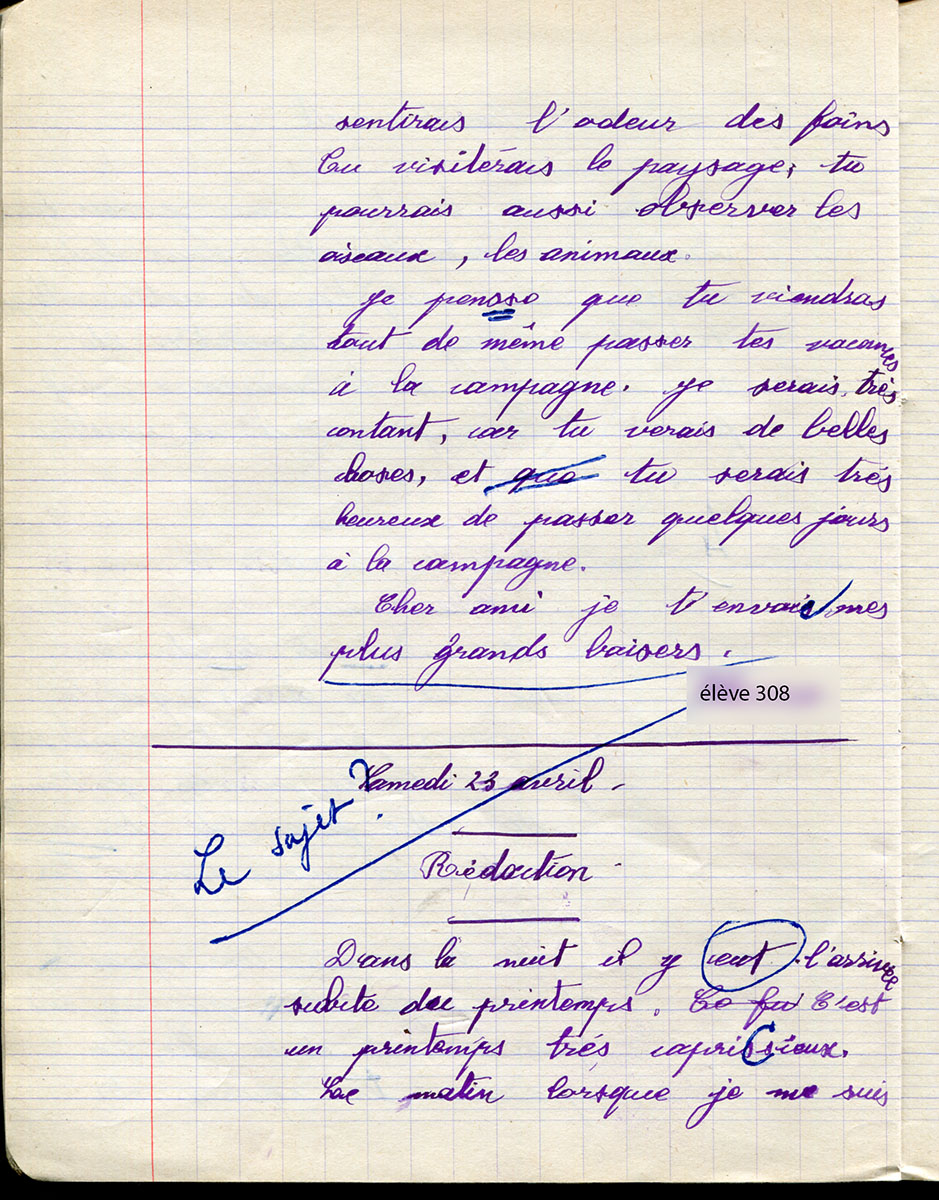 sentirais l'odeur des foins
Tu visitérais le paysage, tu
pourrais aussi observer les
oiseaux, les animaux.
Je pensse que tu viendras
tout de même passer tes vacances
à la campagne. Je serais très
contant, car tu verais de belles
choses, et que tu serais très
heureux de passer quelques jours
à la campagne.
Cher ami je t'envoie mes
plus grands baisers.
élève 308
Samedi 23 avril.
Le sujet ?
Rédaction
Dans la nuit il y eut l'arrivée
subite du printemps. Ce fu C'est
un printemps trés capricieux.
Le matin lorsque je me suis